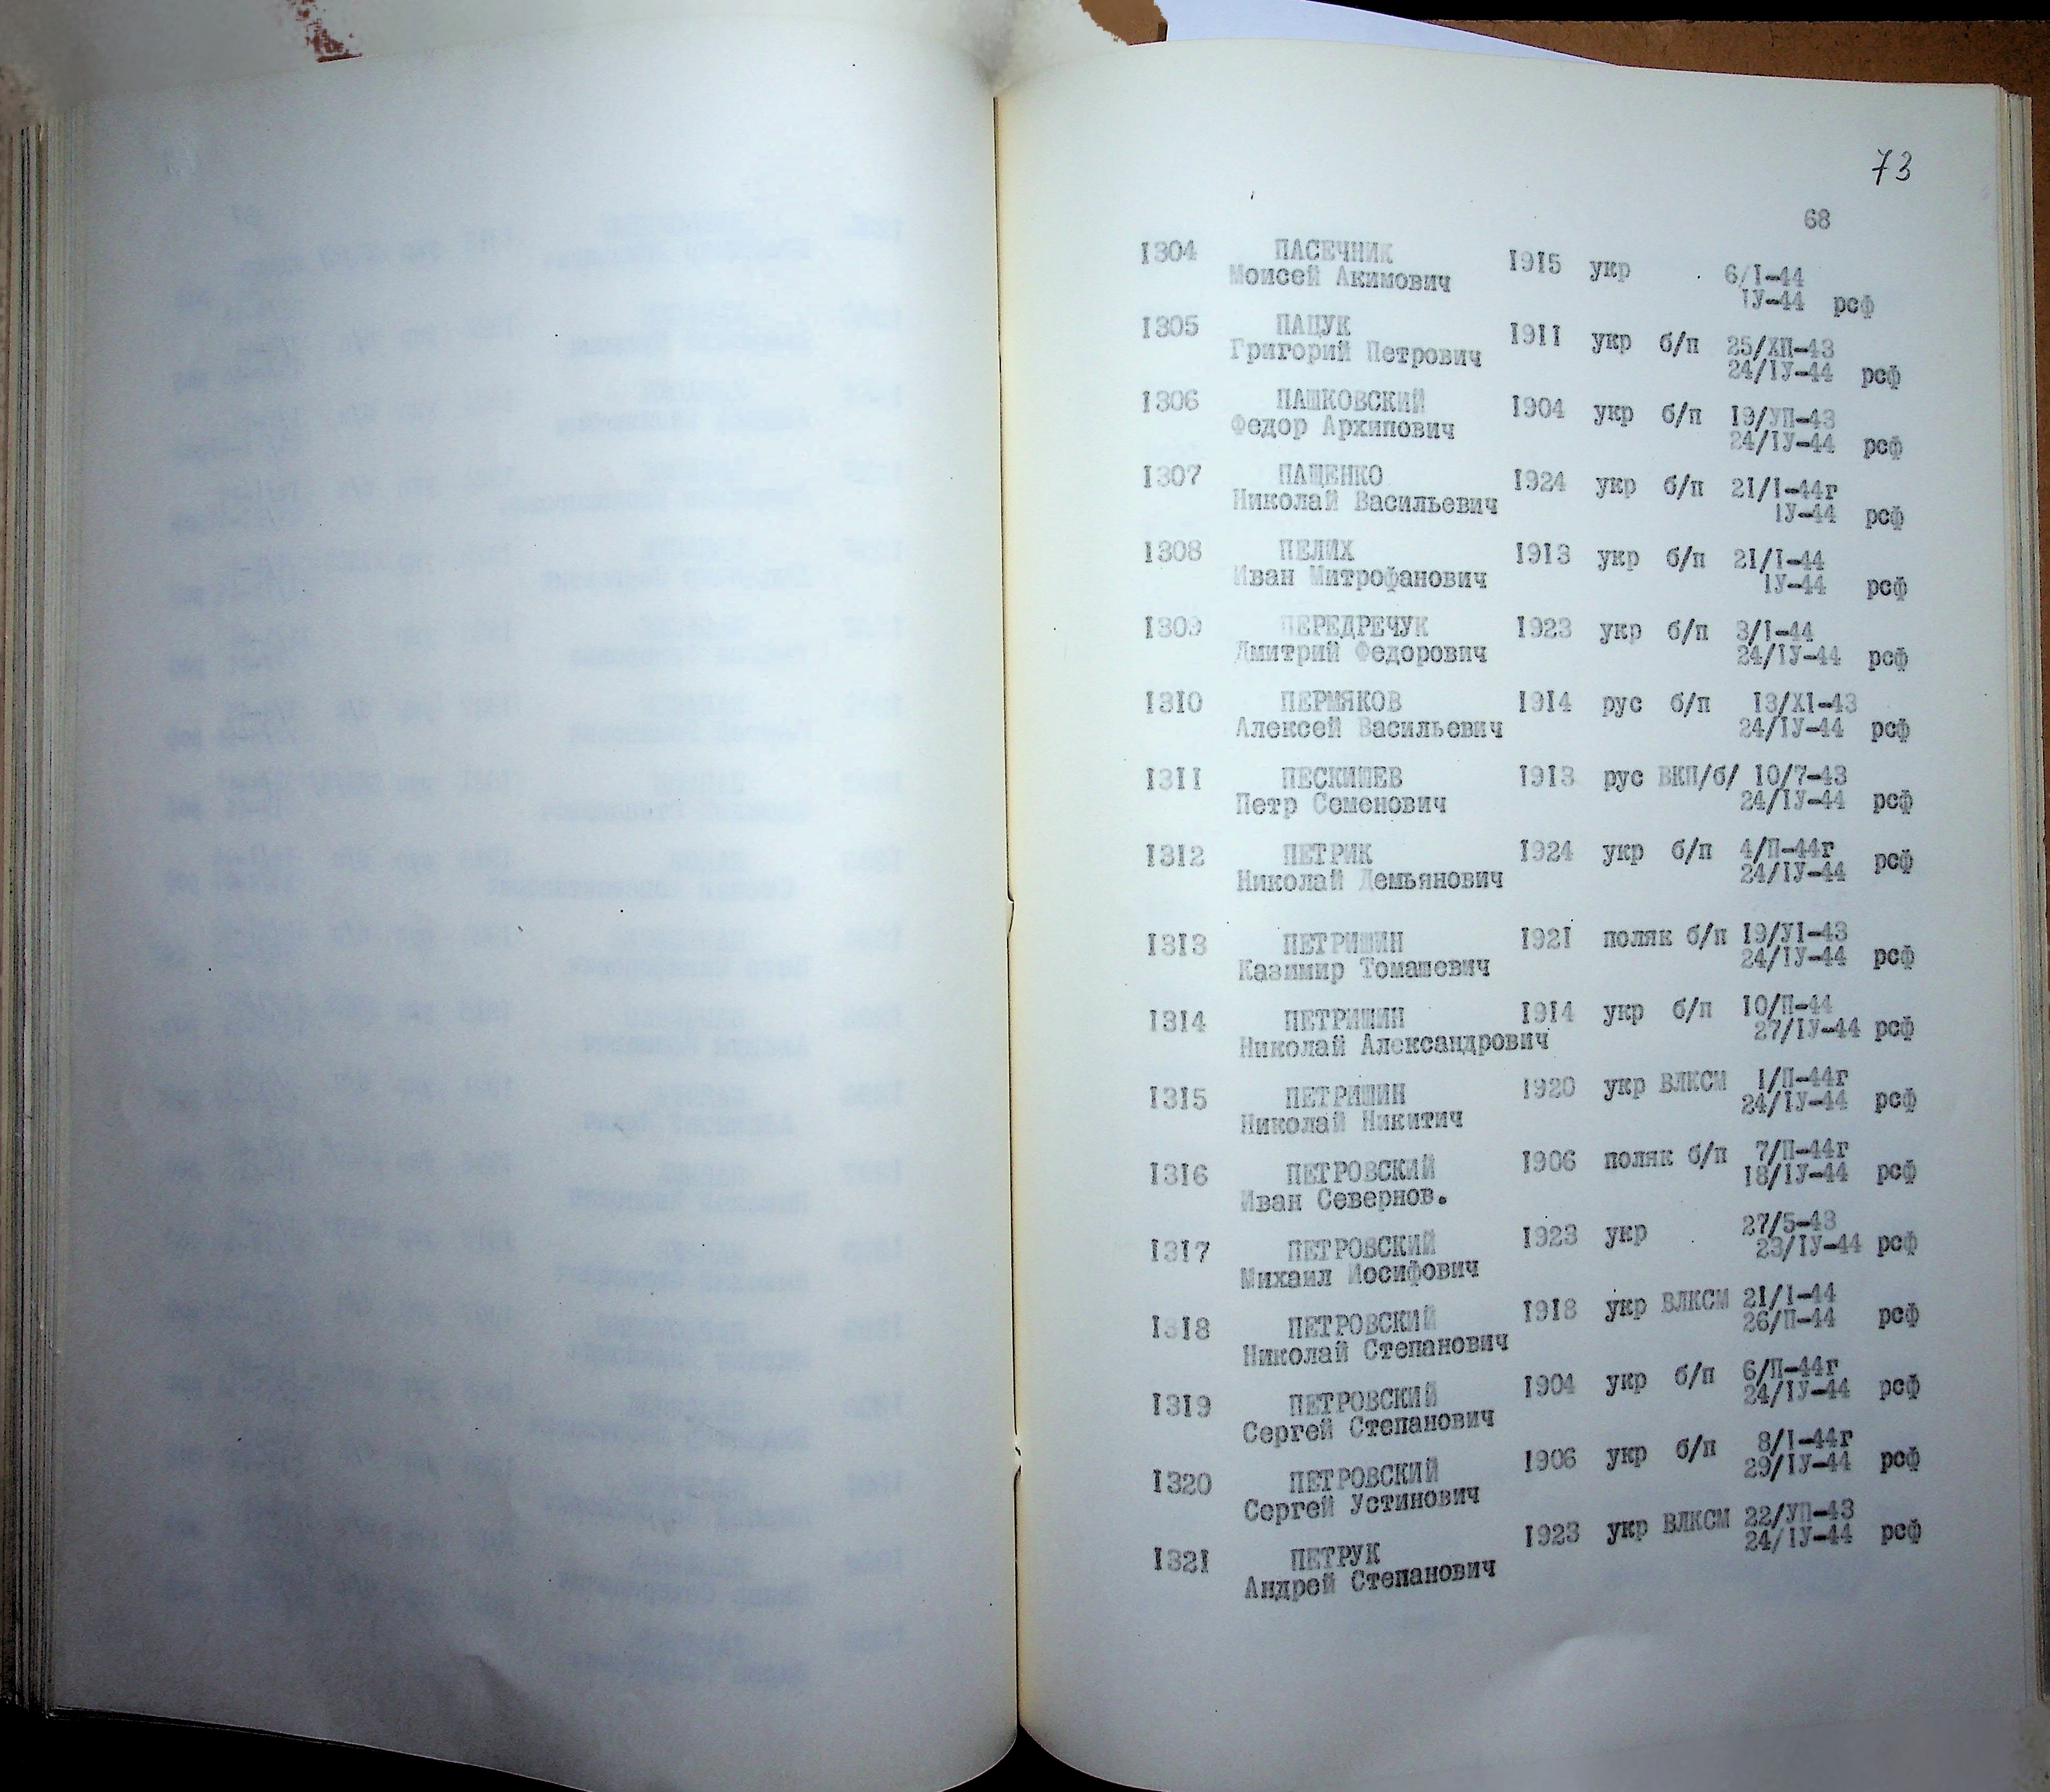 73
68
1304 ПАСЕЧНИК 1915 укр 6/I-44
Моисей Акимович IУ-44 рсф
1305 ПАЦУК 1911 укр б/п 25/ХП-43
Григорий Петрович 24/IУ-44 рсф
1306 ПАШКОВСКИЙ 1904 укр б/п 19/УП-43
Федор Архипович 24/IУ-44 рсф
1307 ПАЩЕНКО 1924 укр б/п 21/I-44г
Николай Васильевич IУ-44 рсф
1308 ПЕЛИХ 1913 укр б/п 21/I-44
Иван Митрофанович IУ-44 рсф
1309 ПЕРЕДРЕЧУК 1923 укр б/п 3/I-44
Дмитрий Федорович 24/IУ-44 рсф
1310 ПЕРМЯКОВ 1914 рус б/п 13/XI-43
Алексей Васильевич 24/IУ-44 рсф
1311 ПЕСКИШЕВ 1913 рус ВКП/б/ 10/7-43
Петр Семенович 24/IУ-44 рсф
1312 ПЕТРИК 1924 укр б/п 4/П-44г
Николай Демьянович 24/IУ-44 рсф
1313 ПЕТРИШИН 1921 поляк б/п 19/УI-43
Казимир Томашевич 24/IУ-44 рсф
1314 ПЕТРИШИН 1914 укр б/п 10/П-44
Николай Александрович 27/IУ-44 рсф
1315 ПЕТРИШИН 1920 укр ВЛКСМ 1/П-44г
Николай Никитич 24/IУ-44 рсф
1316 ПЕТРОВСКИЙ 1906 поляк б/п 7/П-44г
Иван Севернов. 18/IУ-44 рсф
1317 ПЕТРОВСКИЙ 1923 укр 27/5-43
Михаил Иосифович 23/IУ-44 рсф
1318 ПЕТРОВСКИЙ 1918 укр ВЛКСМ 21/I-44
Николай Степанович 26/П-44 рсф
1319 ПЕТРОВСКИЙ 1904 укр б/п 6/П-44г
Сергей Степанович 24/IУ-44 рсф
1320 ПЕТРОВСКИЙ 1906 укр б/п 8/I-44г
Сергей Устинович 29/IУ-44 рсф
1321 ПЕТРУК 1923 укр ВЛКСМ 22/УП-43
Андрей Степанович 24/IУ-44 рсф